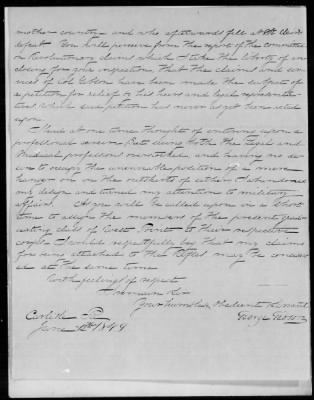 mother country - and who afterwards fell at St. Clair's
defeat. You will perceive from the report of the committee
on Revolutionary claims which I take the liberty of en
closing for your inspection, that the claims and ser
vices of Col. Gibson have been made the subject of
a petition for relief of his heirs and legal representa
tives which said petition has never as yet been acted
upon.
I had at one time thought of entering upon a
professional career. But seeing both the Legal and
Medical professions overstocked, and having no de
sire to occupy the unenviable position of a mere
hanger on in the outskirts of either I abandoned
my design and turned my attention to military
affairs. As you will be called upon in a short
time to assign the members of the present gradu
ating class of West Point to their respective
corps - I would respectfully beg that my claims
for being attached to the Rifles may be considered
at the same time
With feelings of respect
I remain Sir
Your humble & obedient servant
George
Carlisle Pa
June 1848